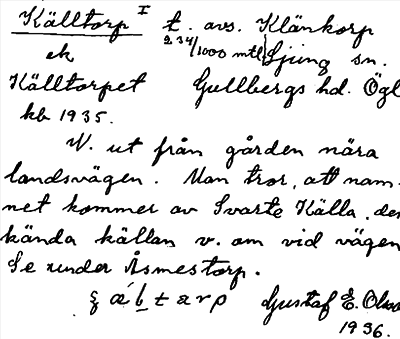 Källtorp I t. avs. Klänkorp
ek 2 34/1000 mtl Ljung sn.
Källtorpet Gullbergs hd. Ögl
kb 1935.
V. ut från gården nära
landsvägen. Man tror, att nam-
net kommer av Svarte Källa, den
kända källan v. om vid vägen
Se under Åsmestorp.
Gustaf E. Olsso
1936.